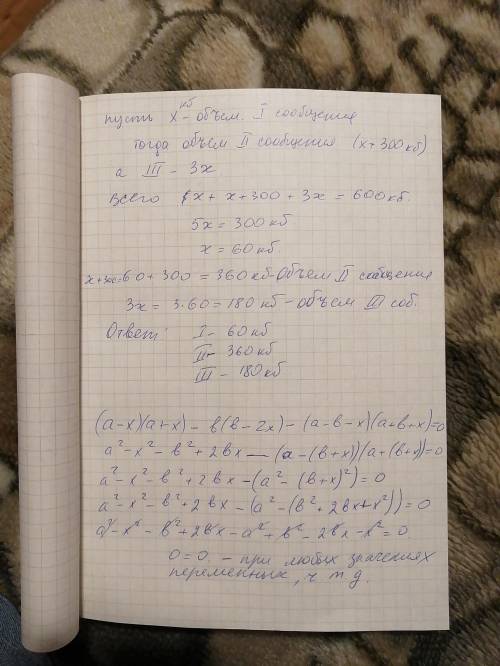 пусть x кб - объем. I сообщения
тогда объем II сообщения (x+300кб)
а III - 3x
Всего x + x+300 + 3x = 600кб.
5x = 300кб
x = 60кб
x+300=60+300 = 360кб-Объем II сообщения
3x = 3·60=180 кб - объем III соб.
Ответ: I - 60кб
II - 360кб
III - 180кб
(a-x)(a+x) - в(в-2x) - (a-в-x)(a+в+x)=0
a²-x²-в²+2вx-(a-(в+x))(a+(в+x))=0
a²-x²-в²+2вx-(a²-(в+x)²)=0
a²-x²-в²+2вx-(a²-(в²+2вx+x²))=0
a²-x²-в²+2вx-a²+в²-2вx-x²=0
0=0 - при любых значениях
переменных, ч т д.